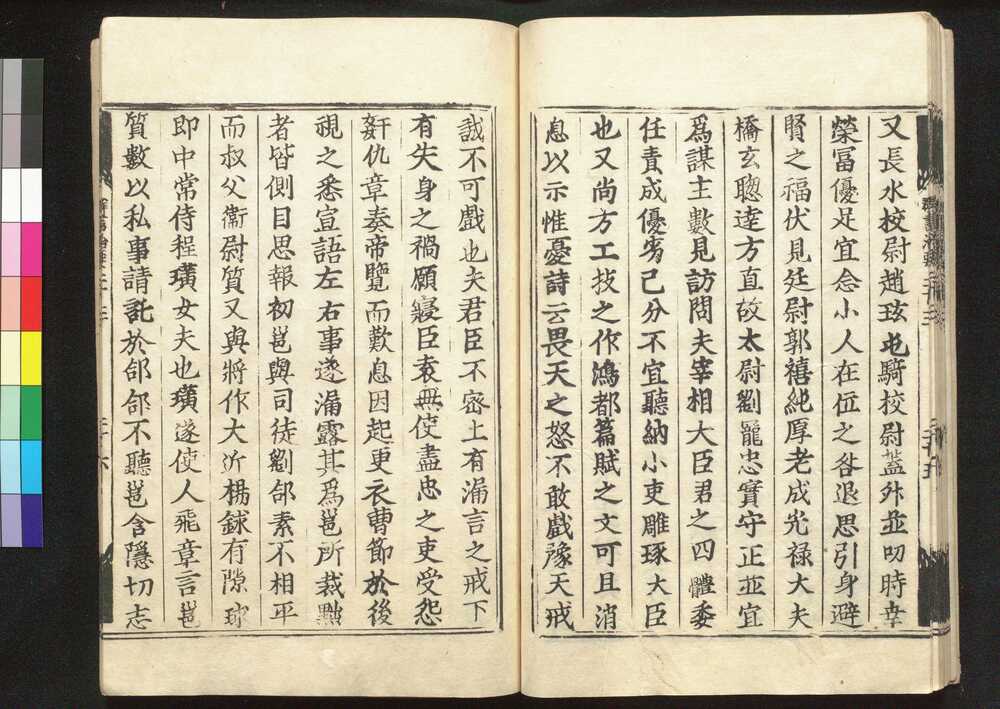 又長水校尉趙玹屯騎校尉蓋升並叨時幸
榮冨優足宜念小人在位之咎退思引身避
賢之福伏見廷尉郭禧純厚老成光禄大夫
橋玄聦達方直故太尉劉寵忠實守正並宜
爲謀主數見訪問夫宰相大臣君之四體委
任責成優劣已分不宜聽納小吏雕琢大臣
也又尚方工技之作鴻都篇賦之文可且消
息以示惟憂詩云畏天之怒不敢戲豫天戒
誠不可戲也夫君臣不密上有漏言之戒下
有失身之禍願寢臣表無使盡忠之吏受怨
姧仇章奏帝覽而歎息因起更衣曹節於後
視之悉宣語左右事遂漏露其爲邕所裁黜
者皆側目思報初邕與司徒劉郃素不相平
而叔父衞尉質又與將作大近楊銶有隙球
即中常侍程璜女夫也璜遂使人飛章言邕
質數以私事請託於郃郃不聽邕含隱切志